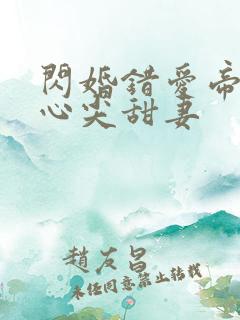 閃婚錯愛帝
心尖甜妻
趙友昌
未任同意禁止轉載